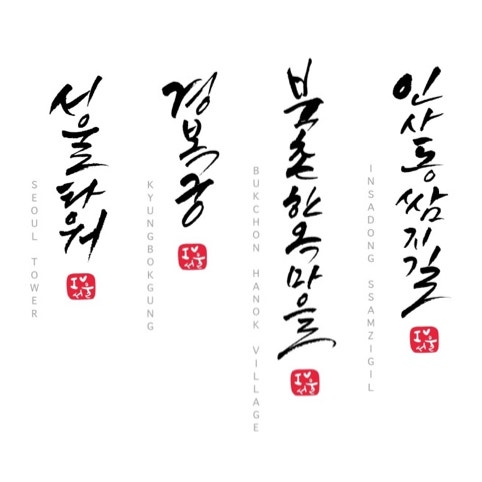 서울타워
SEOUL TOWER
I♥서울
경복궁
KYUNGBOKGUNG
I♥서울
북촌한옥마을
BUKCHON HANOK VILLAGE
I♥서울
인사동쌈지길
INSADONG SSAMZIGIL
I♥서울